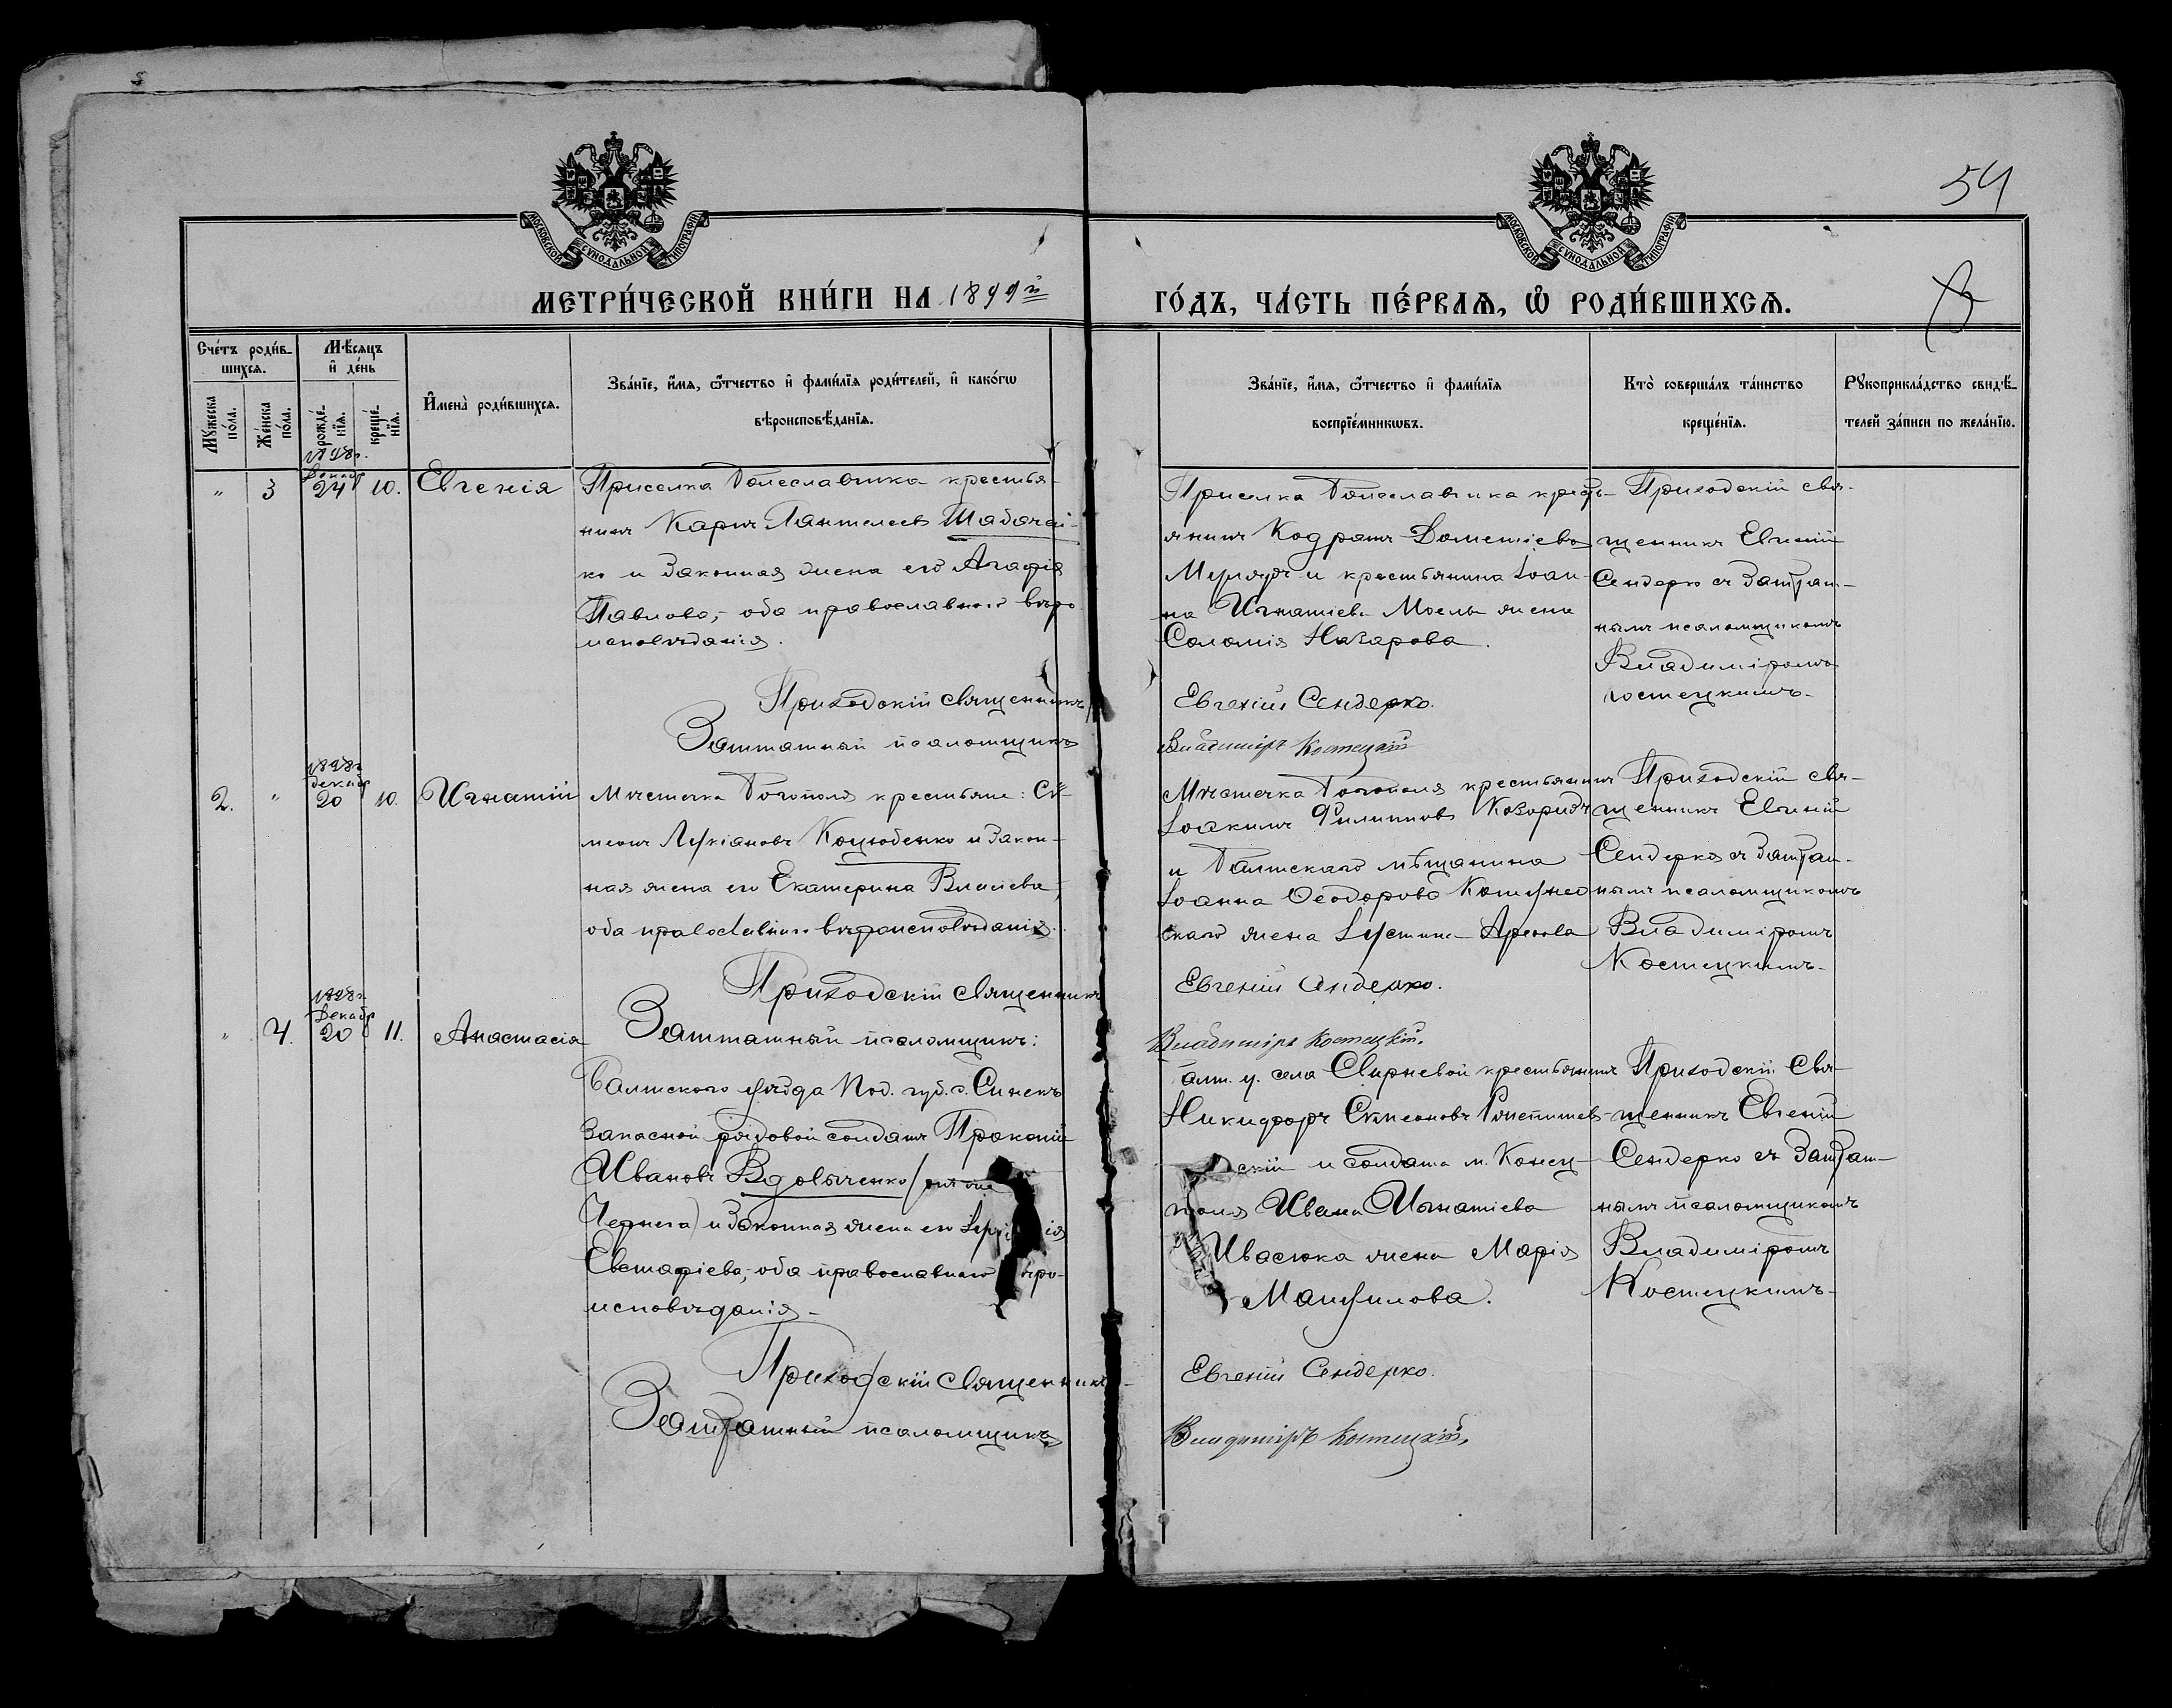 54
МОСКОВСКОЙ СУНОДАЛЬНОЙ ТИПОГРАФІИ
МОСКОВСКОЙ СУНОДАЛЬНОЙ ТИПОГРАФІИ
МЕТРИ́ЧЕСКОЙ КНИ́ГИ НА 1899й
ГО́ДЪ, ЧА́СТЬ ПЕ́РВАѦ, Ѽ РОДИ́ВШИХСѦ.
Сче́тъ роди́в-
шихсѧ.
Мꙋ́жеска по́ла.
Же́нска по́ла.
Мѣ́сѧцъ
и҆ де́нь
рожде́-
нїѧ.
креще́-
нїѧ.
И҆мена̀ роди́вшихсѧ.
Зва́нїе, и҆́мѧ, ѻ҆́тчество и҆ фами́лїѧ роди́телей, и҆ како́гѡ
вѣроисповѣ́данїѧ.
Зва́нїе, и҆́мѧ, ѻ҆́тчество и҆ фами́лїѧ
воспрїе́мникѡвъ.
Кто̀ соверша́лъ та́инство
креще́нїѧ.
Рꙋкоприкла́дство свидѣ́-
телей за́писи по жела́нїю.
1898г.
Декабр
" 3 24 10. Евгенія
Приселка Болеславчика крестья-
нинъ Карпъ Пантелеевъ Шабачай-
ко и законная жена его Агафія
Павлова, оба православнаго вѣро
исповѣданія.
Приходскій священникъ
Заштатный псаломщикъ
Приселка Болеславчика крест-
янинъ Кодратъ Дометіевъ
и крестьянина Іоан-
на Игнатіева жена
Соломія Назарова.
Евгеній Сендерко.
Владиміръ Костецкій
Приходскій свя-
щенникъ Евгеній
Сендерко съ заштат-
нымъ псаломщикомъ
Владиміромъ
Костецкимъ.
1898г.
декабр
2. " 20 10. Игнатій
Мѣстечка Богополя крестьяне: Си-
меонъ Лукіановъ Коцюбенко и закон-
ная жена его Екатерина Власіева,
оба православнаго вѣроисповѣданія.
Приходскій священникъ
Заштатный псаломщикъ:
Мѣстечка Богополя крестьянинъ
Іоакимъ Филиповъ
и Балтскаго мѣщанина
Іоанна Ѳеодорова
скаго жена Іустина
Евгеній Сендерко.
Владиміръ Костецкій.
Приходскій свя-
щенникъ Евгеній
Сендерко съ заштат-
нымъ псаломщикомъ
Владиміромъ
Костецкимъ.
1898г.
Декабр
" 4. 20 11. Анастасія
Балтскаго уѣзда Под. губ. с. Синекъ
запасной рядовой солдатъ Прокопій
Ивановъ Вдовиченко
Чернега) и законная жена его
Евстафіева, оба православнаго вѣро-
исповѣданія.
Приходскій священникъ
Заштатный псаломщикъ
Балт. у. села Свирневой крестьянинъ
Никифоръ Симеоновъ
скій и солдата м. Конец-
поля Ивана Игнатіева
Ивасюка жена Марія
Мануилова.
Евгеній Сендерко.
Владиміръ Костецкій.
Приходскій Свя-
щенникъ Евгеній
Сендерко съ Заштат-
нымъ псаломщикомъ
Владиміромъ
Костецкимъ.